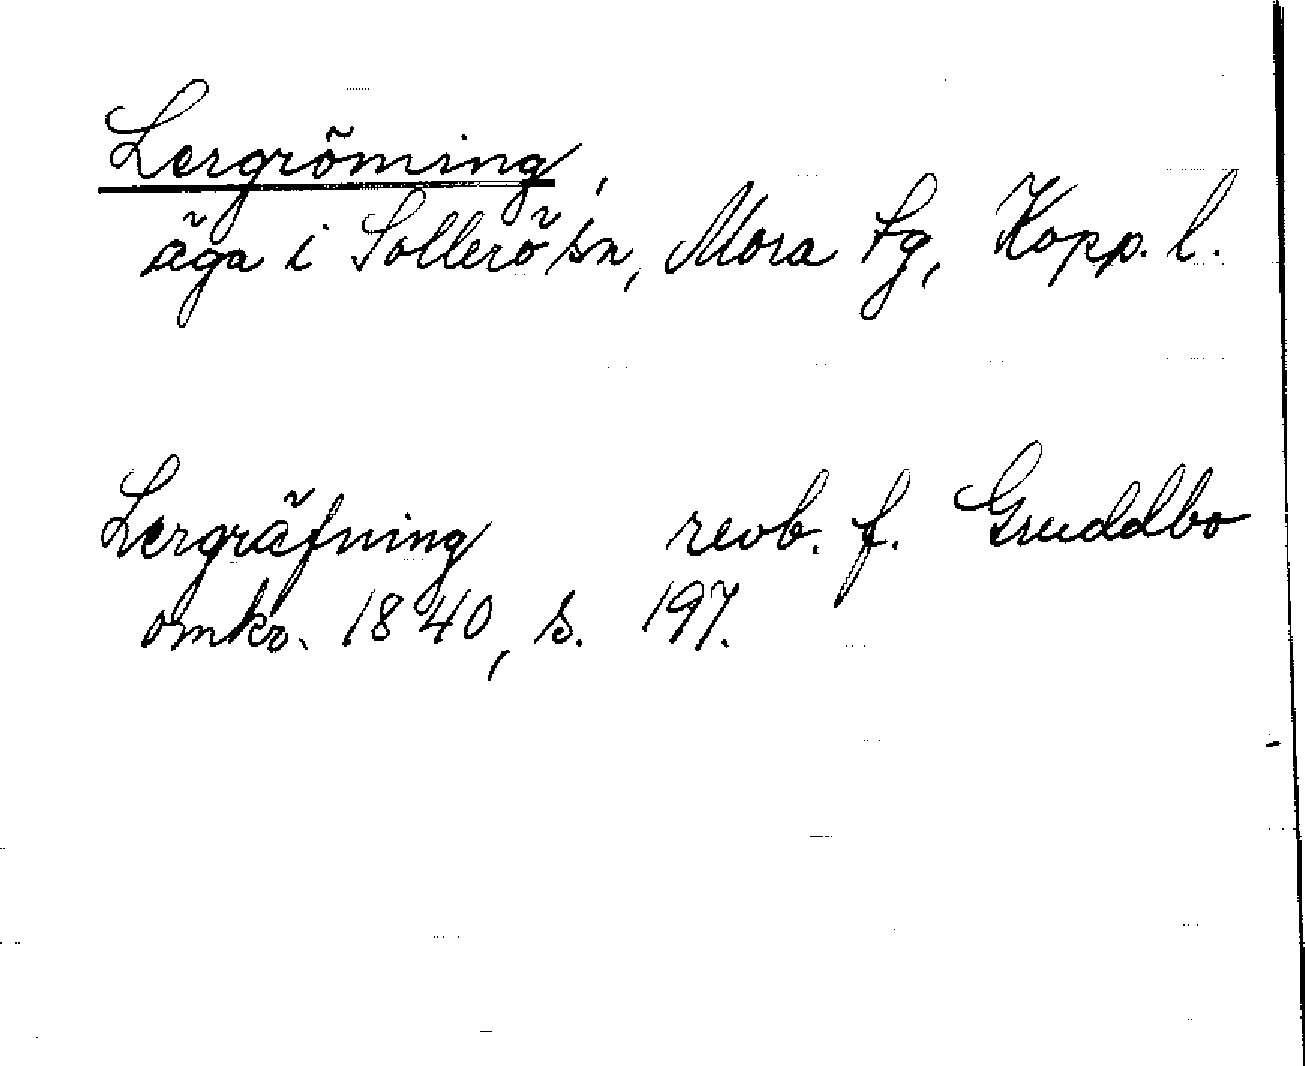 Lergröming,
äga i Sollerö sn, Mora tg, Kopp. l.
Lergräfning revb. f. Gruddbo
omkr. 1840, s. 197.